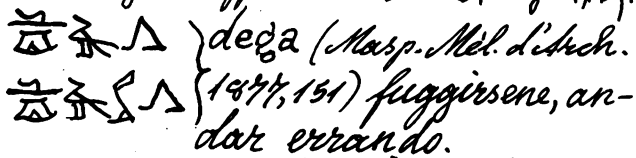 dega (Masp. Mél. d'Arch.
1877, 151) fuggirsene, an-
dar errando.